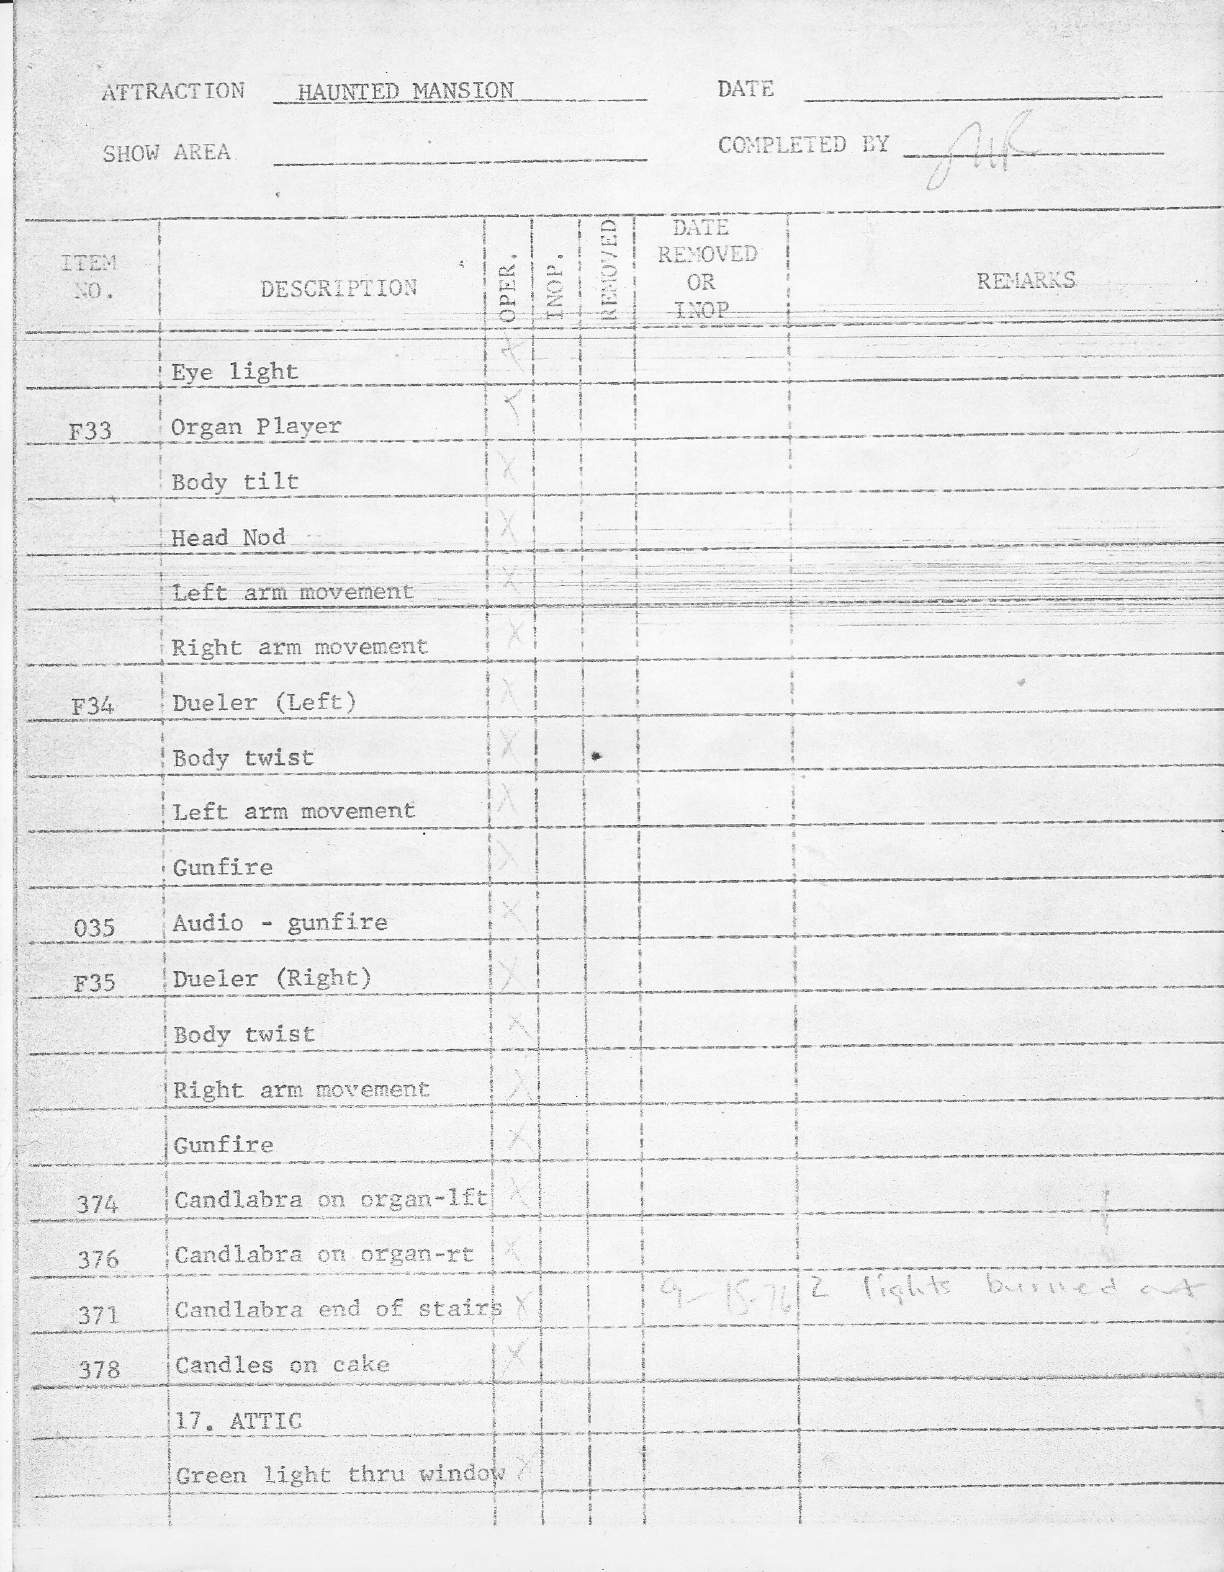 ATTRACTION HAUNTED MANSION DATE
SHOW AREA COMPLETED BY
ITEM NO. DESCRIPTION OPER. INOP. REMOVED DATE REMOVED OR INOP REMARKS
Eye light X
F33 Organ Player X
Body tilt X
Head Nod X
Left arm movement X
Right arm movement X
F34 Dueler (Left) X
Body twist X
Left arm movement X
Gunfire X
035 Audio - gunfire X
F35 Dueler (Right) X
Body twist X
Right arm movement X
Gunfire X
374 Candlabra on organ-lft X
376 Candlabra on organ-rt X
371 Candlabra end of stairs X 9-15-76 2 lights burned out
378 Candles on cake X
17. ATTIC
Green light thru window X